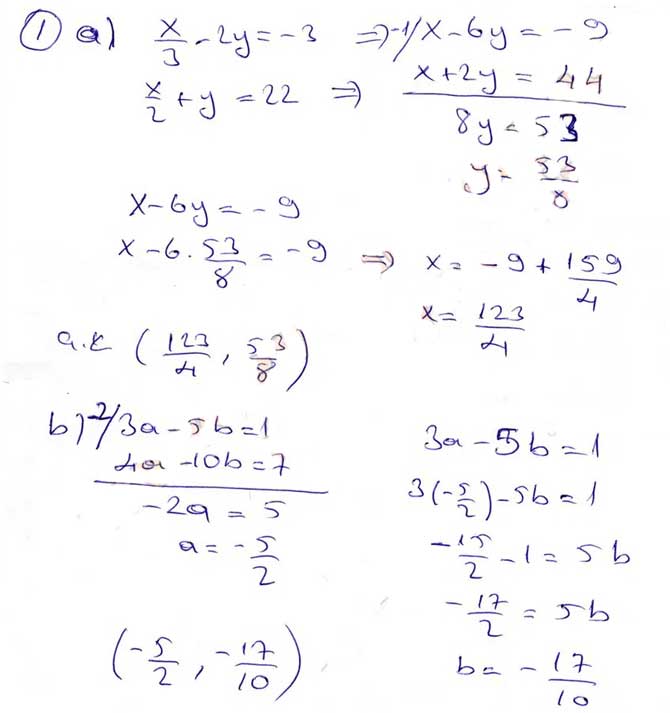 ① a) x/3 - 2y = -3 ⇒ -1/ x - 6y = -9
x/2 + y = 22 ⇒ x + 2y = 44
8y = 53
y = 53/8
x - 6y = -9
x - 6 · 53/8 = -9 ⇒ x = -9 + 159/4
x = 123/4
(123/4, 53/8)
b) -2/ 3a - 5b = 1
4a - 10b = 7
-2a = 5
a = -5/2
3a - 5b = 1
3(-5/2) - 5b = 1
-15/2 - 1 = 5b
-17/2 = 5b
b = -17/10
(-5/2, -17/10)